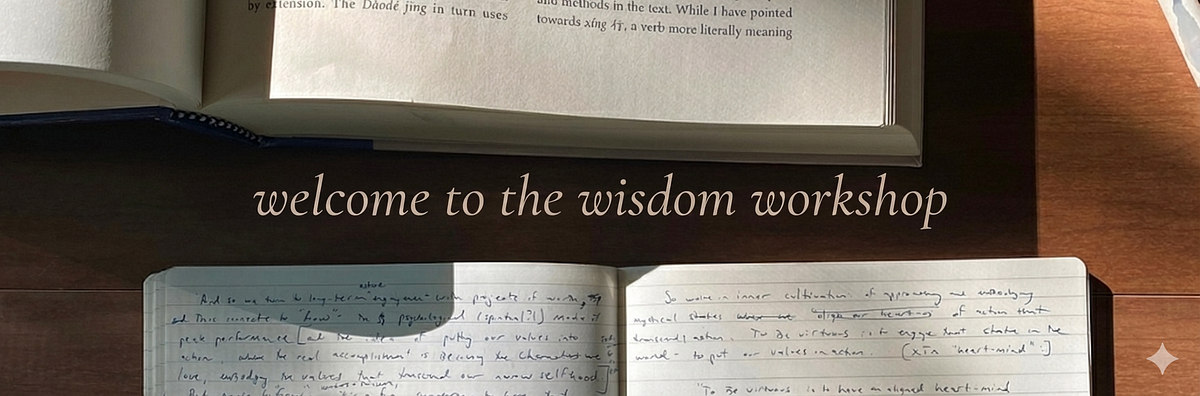 by extension. The Dàodé jīng in turn uses
and methods in the text. While I have pointed
towards xíng 行, a verb more literally meaning
welcome to the wisdom workshop
And so we turn to long-term engagement with projects of worth,
active
and this connects to "how". psychological (spiritual?!) mode of
peak performance of putting our values into
action, where the real accomplishment is becoming the character we
love, embodying the values that transcend our narrow selfhood
So we're in inner cultivation of approaching and embodying
mystical states of action that
transcend action. To be virtuous is to engage that state in the
world - to put our values in action. (xīn "heart-mind".)
"To be virtuous is to have an aligned heart-mind